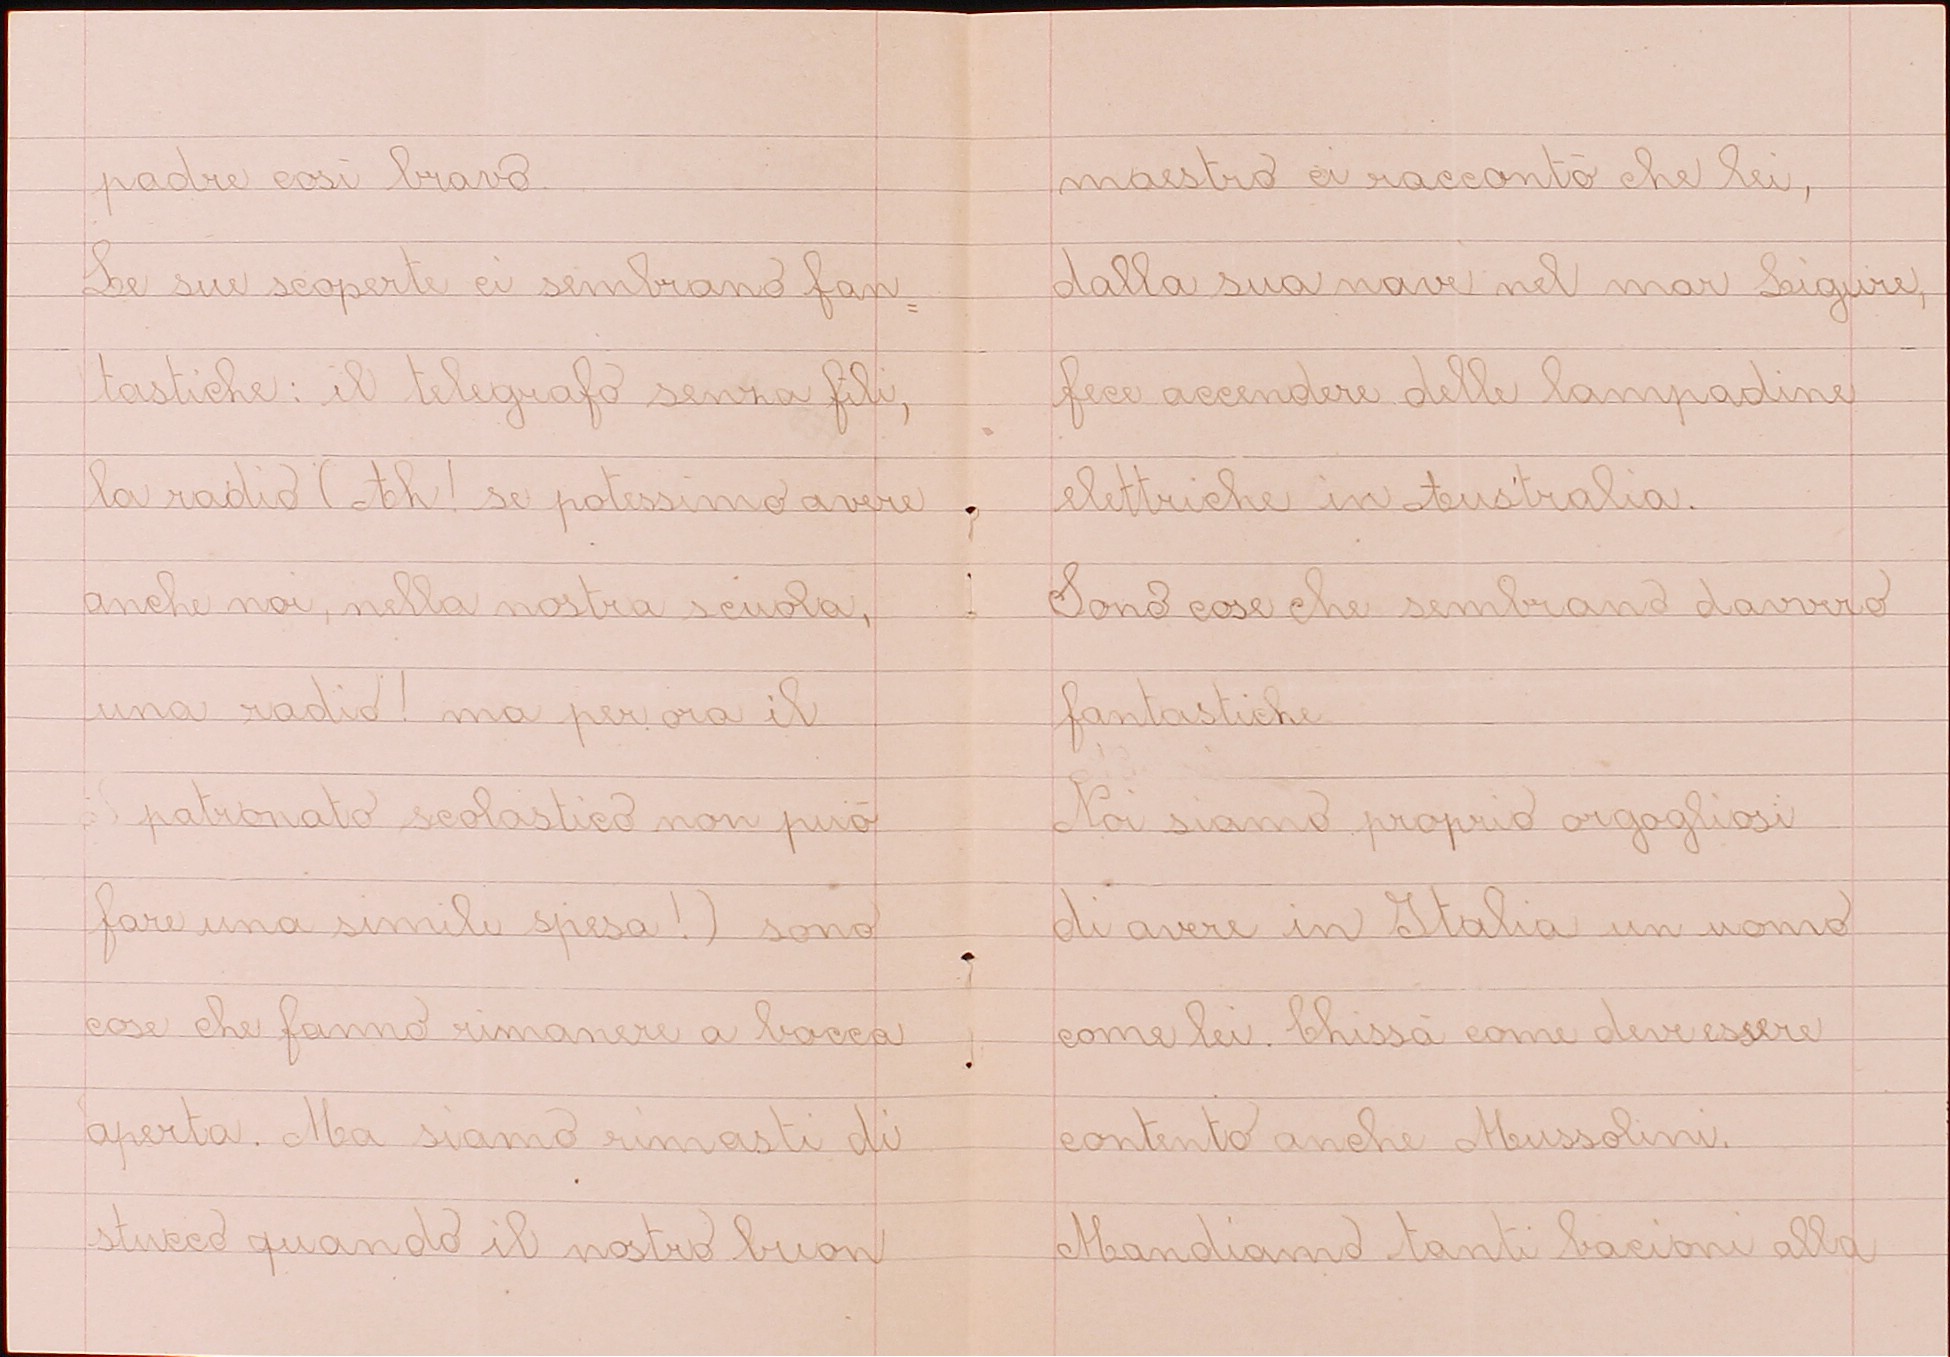 padre così bravo.
Le sue scoperte ci sembrano fan=
tastiche: il telegrafo senza fili,
la radio (Ah! se potessimo avere
anche noi, nella nostra scuola,
una radio! ma per ora il
patronato scolastico non può
fare una simile spesa!) sono
cose che fanno rimanere a bocca
aperta. Ma siamo rimasti di
stucco quando il nostro buon
maestro ci raccontò che lei,
dalla sua nave nel mar Ligure,
fece accendere delle lampadine
elettriche in Australia.
Sono cose che sembrano davvero
fantastiche
Noi siamo proprio orgogliosi
di avere in Italia un uomo
come lei. Chissà come deve essere
contento anche Mussolini.
Mandiamo tanti bacioni alla